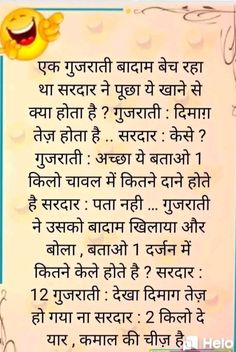 एक गुजराती बादाम बेच रहा
था सरदार ने पूछा ये खाने से
क्या होता है ? गुजराती : दिमाग़
तेज़ होता है .. सरदार : केसे ?
गुजराती : अच्छा ये बताओ 1
किलो चावल में कितने दाने होते
है सरदार : पता नही ... गुजराती
ने उसको बादाम खिलाया और
बोला , बताओ 1 दर्जन में
कितने केले होते है ? सरदार :
12 गुजराती : देखा दिमाग तेज़
हो गया ना सरदार : 2 किलो दे
यार , कमाल की चीज़ है
Helo